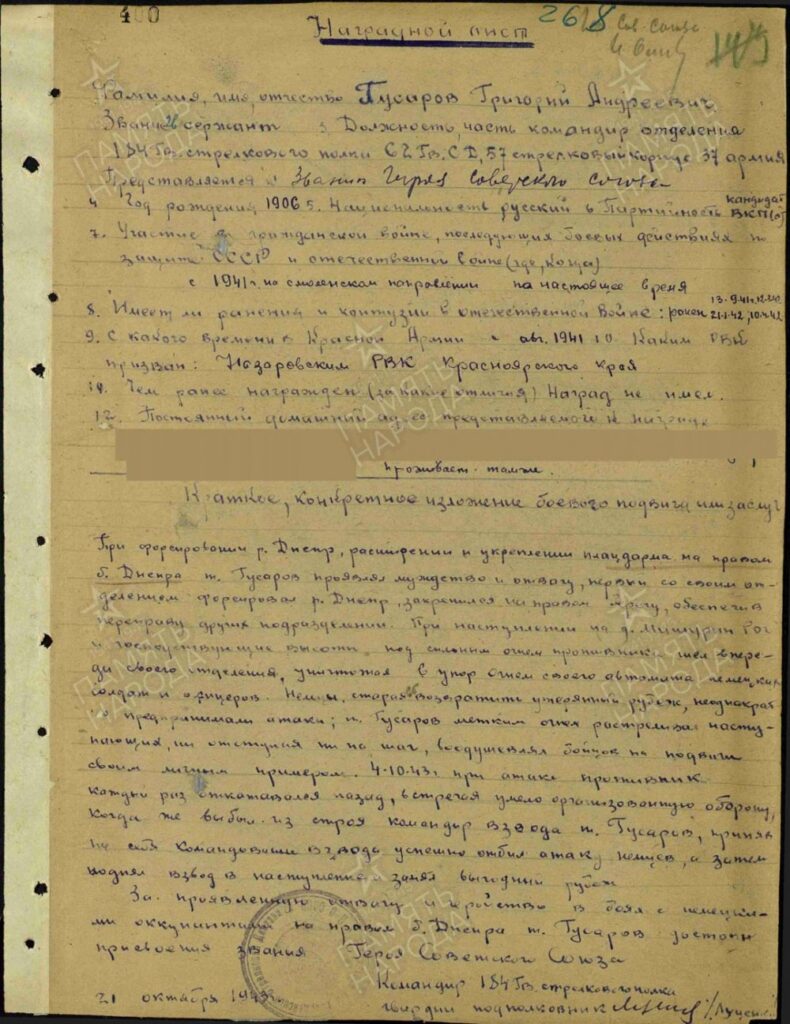 400
2618
Наградной лист
Фамилия, имя, отчество Гусаров Григорий Андреевич
Звание сержант 3 Должность, часть командир отделения
184 Гв. стрелкового полка 62 Гв. СД, 57 стрелковый корпус 37 армия
Представляется к Званию Героя Советского союза
4 Год рождения 1906 5. Национальность русский 6 Партийность кандидат ВКП(б)
7. Участие в гражданской войне, последующих боевых действиях по
защите СССР и отечественной войне (где, когда)
с 1941 г. на смоленском направлении по настоящее время
8. Имеет ли ранения и контузии в отечественной войне: ранен
9. С какого времени в Красной Армии с авг. 1941 10. Каким РВК
призван: Назаровским РВК Красноярского края
11. Чем ранее награжден (за какие отличия) Наград не имел.
12. Постоянный домашний адрес представляемого к награде
проживает там же.
Краткое, конкретное изложение боевого подвига или заслуг
При форсировании р. Днепр, расширении и укреплении плацдарма на правом
б. Днепра т. Гусаров проявлял мужество и отвагу, первый со своим от-
делением форсировал р. Днепр, закрепился на правом берегу, обеспечив
переправу других подразделений. При наступлении на д. Мишурин Рог
и господствующие высоты под сильным огнем противника шел впере-
ди своего отделения, уничтожая в упор огнем своего автомата немецких
солдат и офицеров. Немцы, стараясь возвратить утерянный рубеж, неоднократ
но предпринимали атаки; т. Гусаров метким огнем расстреливал насту-
пающих, не отступая ни на шаг, воодушевлял бойцов на подвиги
своим личным примером. 4.10.43 г. при атаке противник
каждый раз откатывался назад, встречая умело организованную оборону,
когда же выбыл из строя командир взвода т. Гусаров, приняв
на себя командование взвода успешно отбил атаку немцев, а затем
поднял взвод в наступление и занял выгодный рубеж
За проявленную отвагу и геройство в боях с немецки-
ми оккупантами на правом б. Днепра т. Гусаров достоин
присвоения звания Героя Советского Союза
Командир 184 Гв. стрелкового полка
21 октября 1943 г. гвардии подполковник
ПАМЯТЬ НАРОДА